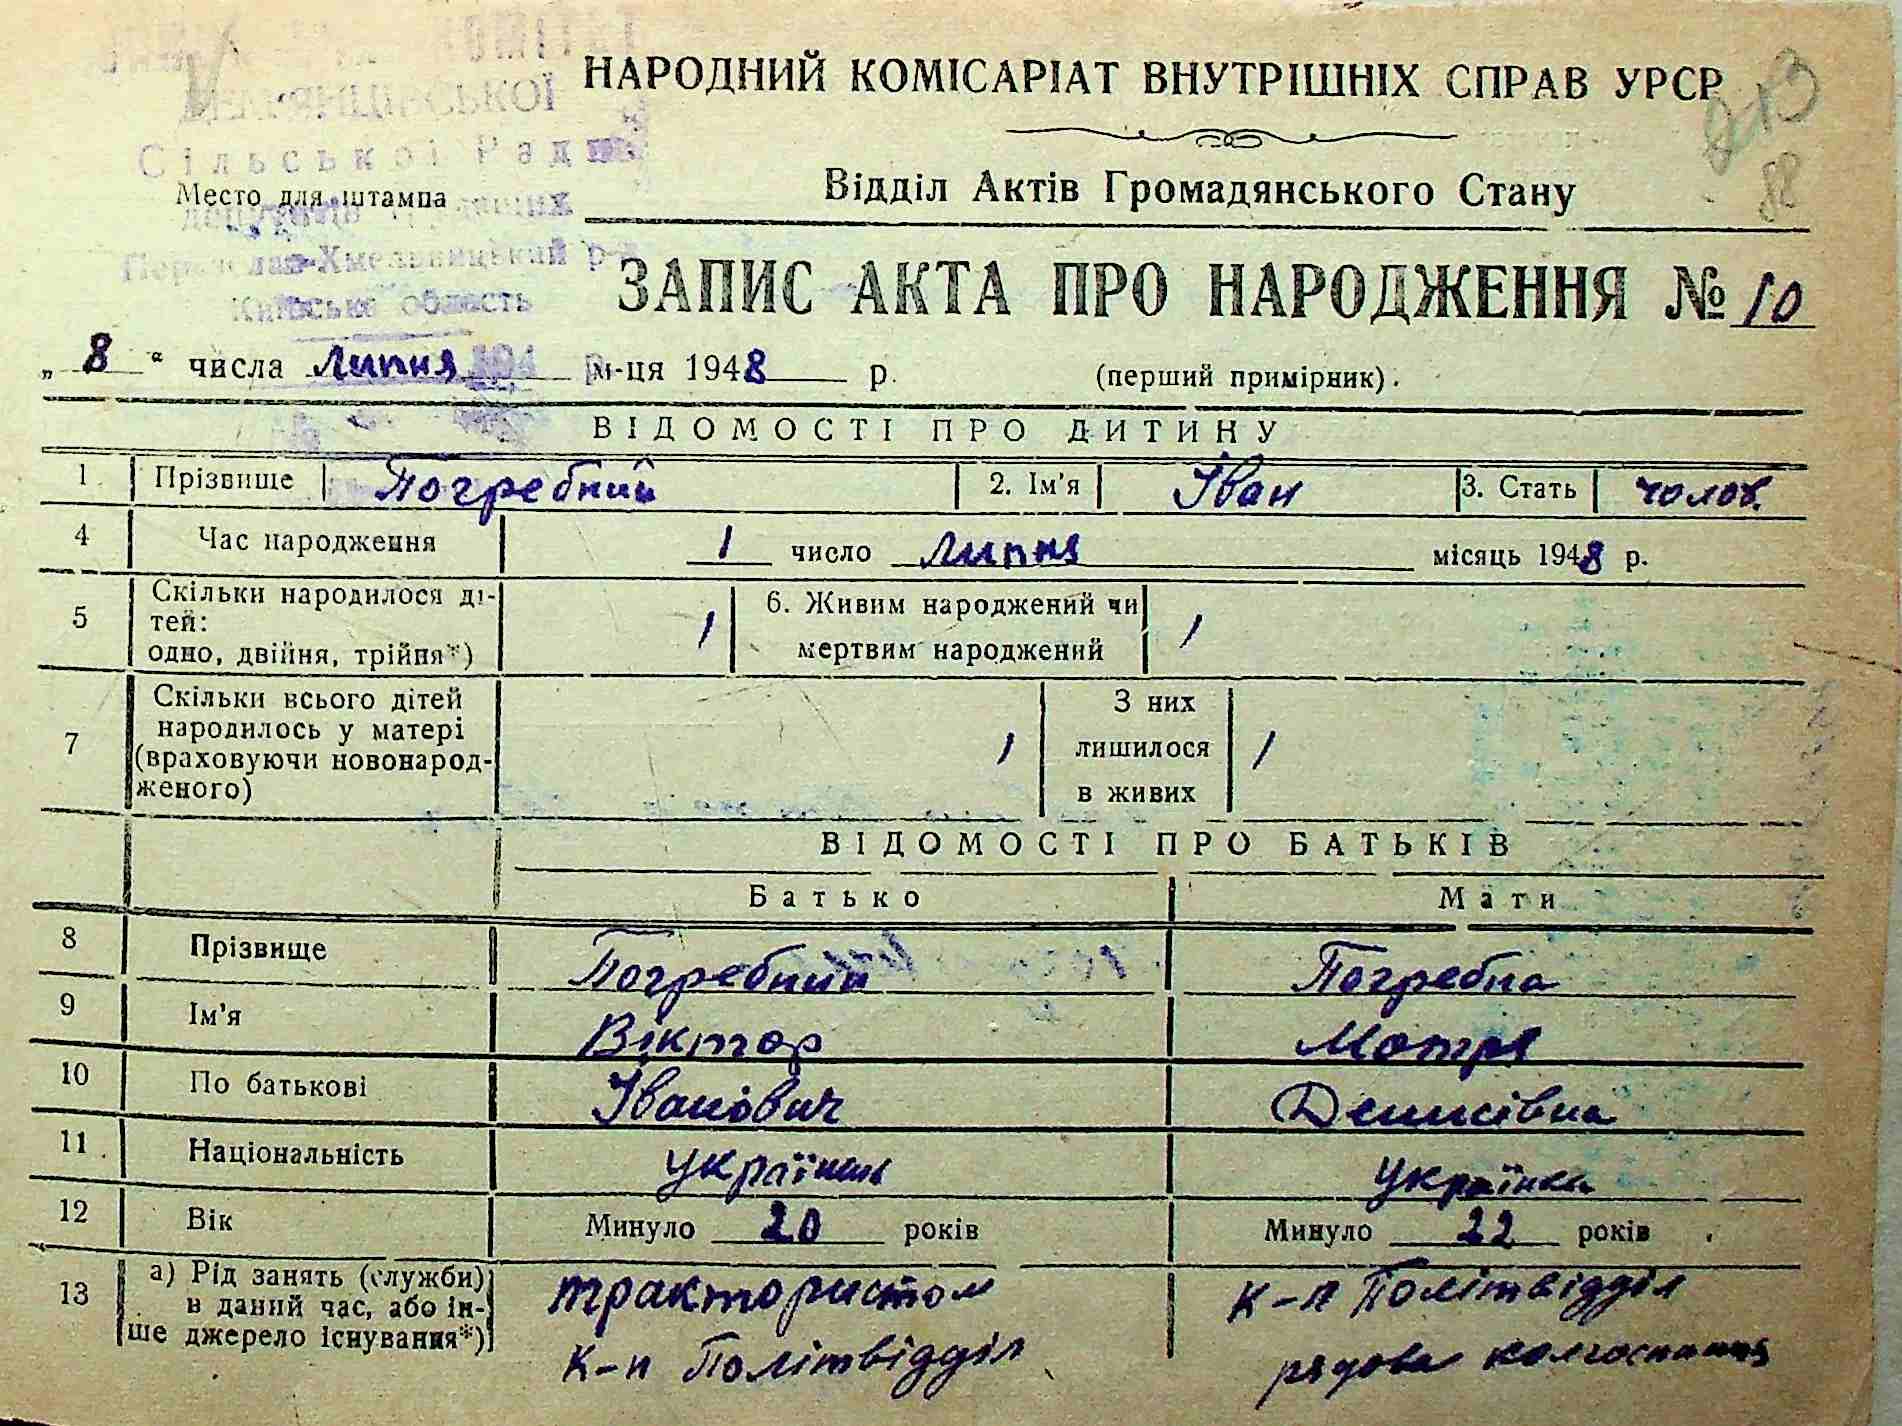 НАРОДНИЙ КОМІСАРІАТ ВНУТРІШНІХ СПРАВ УРСР
213
88
Сільської Рад
Відділ Актів Громадянського Стану
Место для штампа
депутатів трудящих
Переяслав-Хмельницький р-
Київська область
ЗАПИС АКТА ПРО НАРОДЖЕННЯ № 10
„ 8 “ числа Липня м-ця 1948 р. (перший примірник).
ВІДОМОСТІ ПРО ДИТИНУ
1. Прізвище Погребний 2. Ім'я Іван 3. Стать чолов.
4 Час народження 1 число Липня місяць 1948 р.
5 Скільки народилося ді-
тей:
одно, двійня, трійня*) 1
6. Живим народжений чи
мертвим народжений 1
7 Скільки всього дітей
народилось у матері
(враховуючи новонарод-
женого) 1
З них
лишилося
в живих 1
ВІДОМОСТІ ПРО БАТЬКІВ
Батько Мати
8 Прізвище Погребний Погребна
9 Ім'я Віктор Мотря
10 По батькові Іванович Денисівна
11. Національність українець українка
12 Вік Минуло 20 років Минуло 22 років
13 а) Рід занять (служби)
в даний час, або ін-
ше джерело існування*)
трактористом
к-п Політвідділ
к-п Політвідділ
рядова колгоспниця